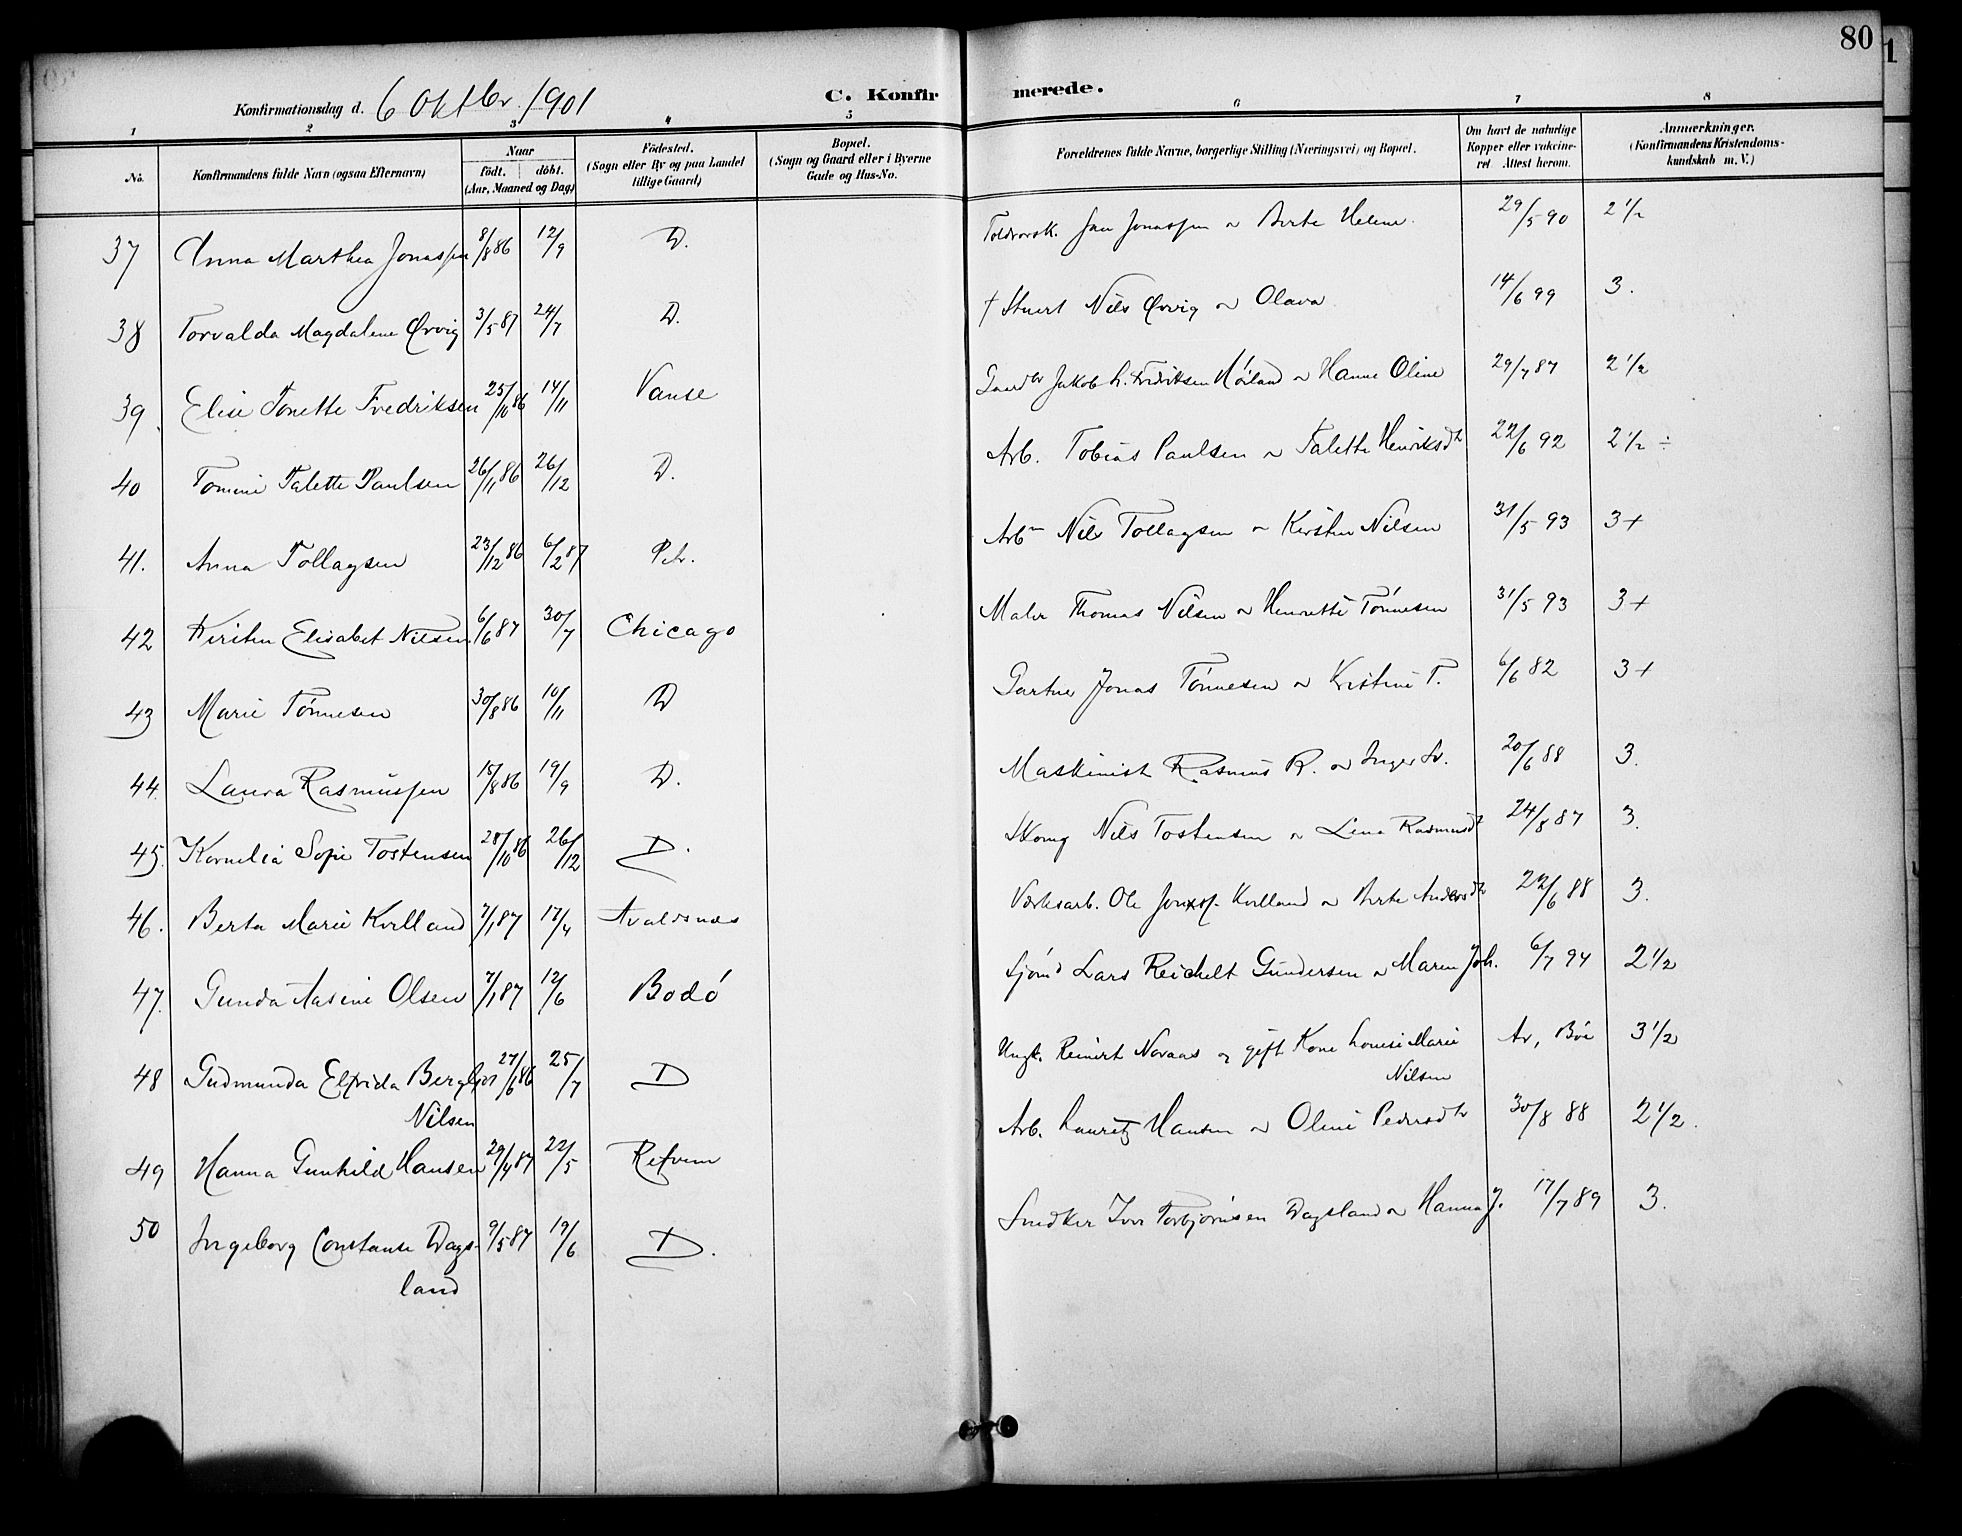 80
1
Konfirmationsdag d. 6 Oktbr. 1901
C. Konfirmerede.
1 2 3 4 5 6 7 8
No. Konfirmandens fulde Navn (ogsaa Efternavn) Naar født. døbt. (Aar, Maaned og Dag) Fødested. (Sogn eller By og paa Landet tillige Gaard) Bopæl. (Sogn og Gaard eller i Byerne Gade og Hus-No. Forældrenes fulde Navne, borgerlige Stilling (Næringsvei) og Bopæl. Om havt de naturlige Kopper eller vakcineret. Attest herom. Anmærkninger. (Konfirmandens Kristendomskundskab m. V.)
37 Anna Marthea Jonassen 8/8 86 12/9 D. Jonassen Berte Helene 29/5 90 2 1/2
38 Torvalda Magdalene Ørvig 3/5 87 24/7 D. † Stuert Nils Ørvig Olava 14/6 99 3.
39. Elise Tonette Fredriksen 25/10 86 14/11 Vanse Jakob Hanne Oline 29/7 87 2 1/2
40 Tomine Talette Paulsen 26/11 86 26/12 D. Arb. Tobias Paulsen Talette Henriksdt 22/6 92 2 1/2 ÷
41. Anna Tollagsen 23/12 86 6/2 87 Petr. Arb. Nils Tollagsen Kirsten Nilsen 31/5 93 3+
42 Kirsten Elisabet Nilsen 6/6 87 30/7 Chicago Maler Thomas Nilsen Henriette Tønnesen 31/5 93 3+
43 Marie Tønnesen 30/8 86 10/11 D Gartner Jonas Tønnesen Kristine T. 6/6 82 3+
44. Laura Rasmussen 15/8 86 19/9 D. Maskinist Rasmus R. Inger 20/6 88 3.
45. Kornelia Sofie Tostensen 28/10 86 26/12 D. Skomg Nils Tostensen Lina Rasmusdt 24/8 87 3.
46. Berta Marie Kvilland 7/1 87 17/4 Avaldsnæs Værksarb. Ole Kvilland Berte Andersdt 22/6 88 3.
47. Gunda Aasine Olsen 7/1 87 12/6 Bodö Sjömd Lars Reichelt Gundersen Maren Joh. 6/7 94 2 1/2
48 Gudmunda Elfrida Bergljot 27/6 86 25/7 D Ungk. Reinert gift Kone Louise Marie Av, Bøe 3 1/2
Nilsen Nilsen
49 Hanna Gunhild Hansen 29/4 87 22/5 Arb. Lauritz Hansen Oline Pedersdtr 30/8 88 2 1/2.
50 Ingeborg Constanse Dags- 9/5 87 19/6 D. Snedker Iver Torbjørnsen Dagsland Hanna J. 17/7 89 3.
land